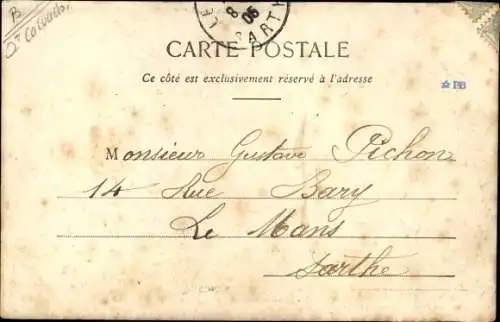 B
LE
8
05
SARTHE
CARTE POSTALE
Ce côté est exclusivement réservé à l'adresse
Monsieur Gustave Pichon
14 Rue Bary
Le Mans
Sarthe